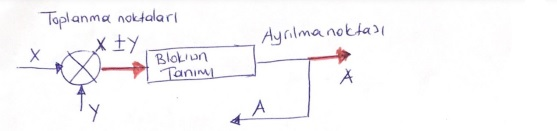 Toplanma noktaları
X
X ±Y
Y
Blokun
Tanımı
Ayrılma noktası
A
A